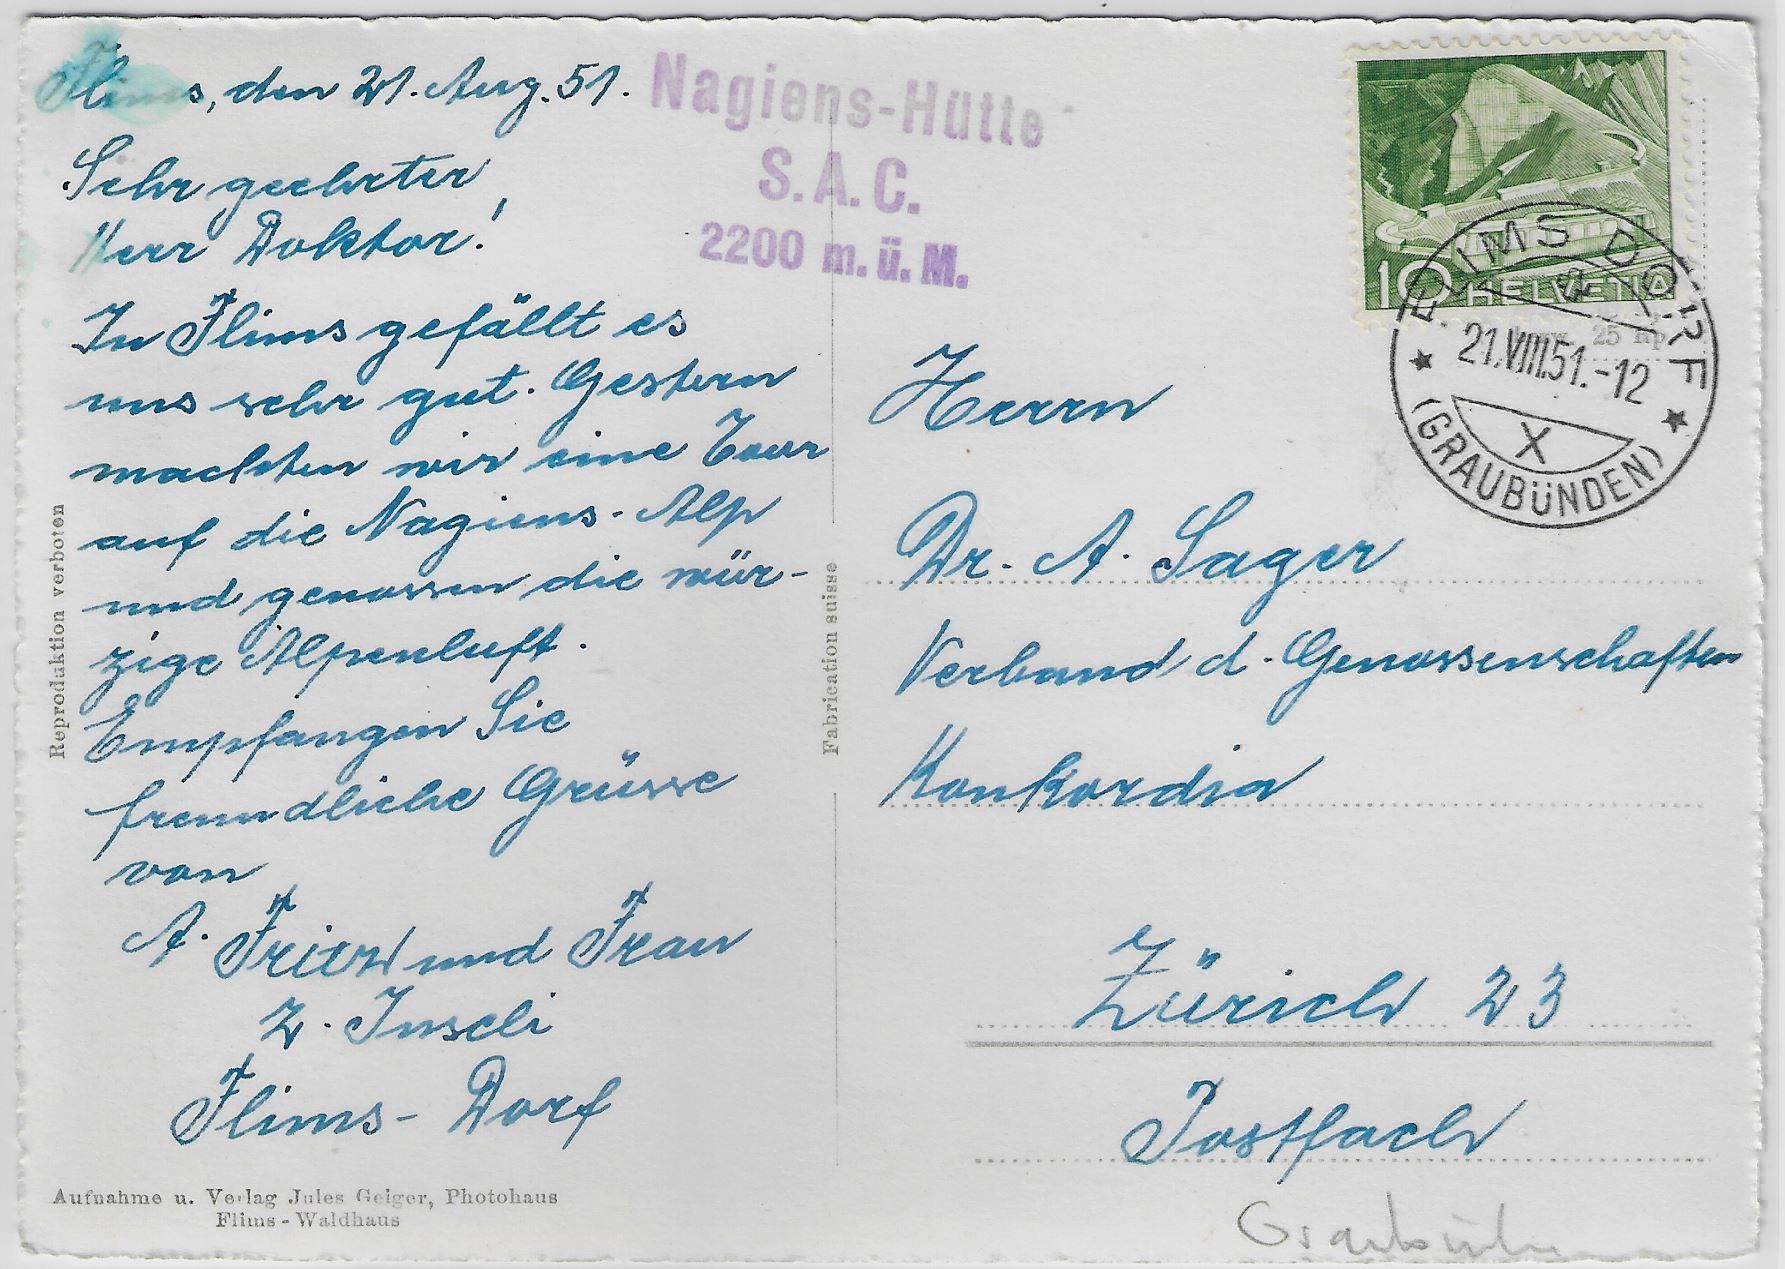 Flims, den 21. Aug. 51.
Sehr geehrter
Herr Doktor!
In Flims gefällt es
uns sehr gut. Gestern
machten wir eine Tour
auf die Nagiens-Alp
und genossen die wür-
zige Alpenluft.
Empfangen Sie
freundliche Grüsse
von
A. Fritz und Frau
z. Inseli
Flims-Dorf
Aufnahme u. Verlag Jules Geiger, Photohaus
Flims-Waldhaus
Reproduktion verboten
Fabrication suisse
Nagiens-Hütte
S.A.C.
2200 m.ü.M.
10 HELVETIA
25 Rp
FLIMS DORF
21.VIII.51.-12
X
(GRAUBÜNDEN)
Herrn
Dr. A. Sager
Verband d. Genossenschaften
Konkordia
Zürich 23
Postfach